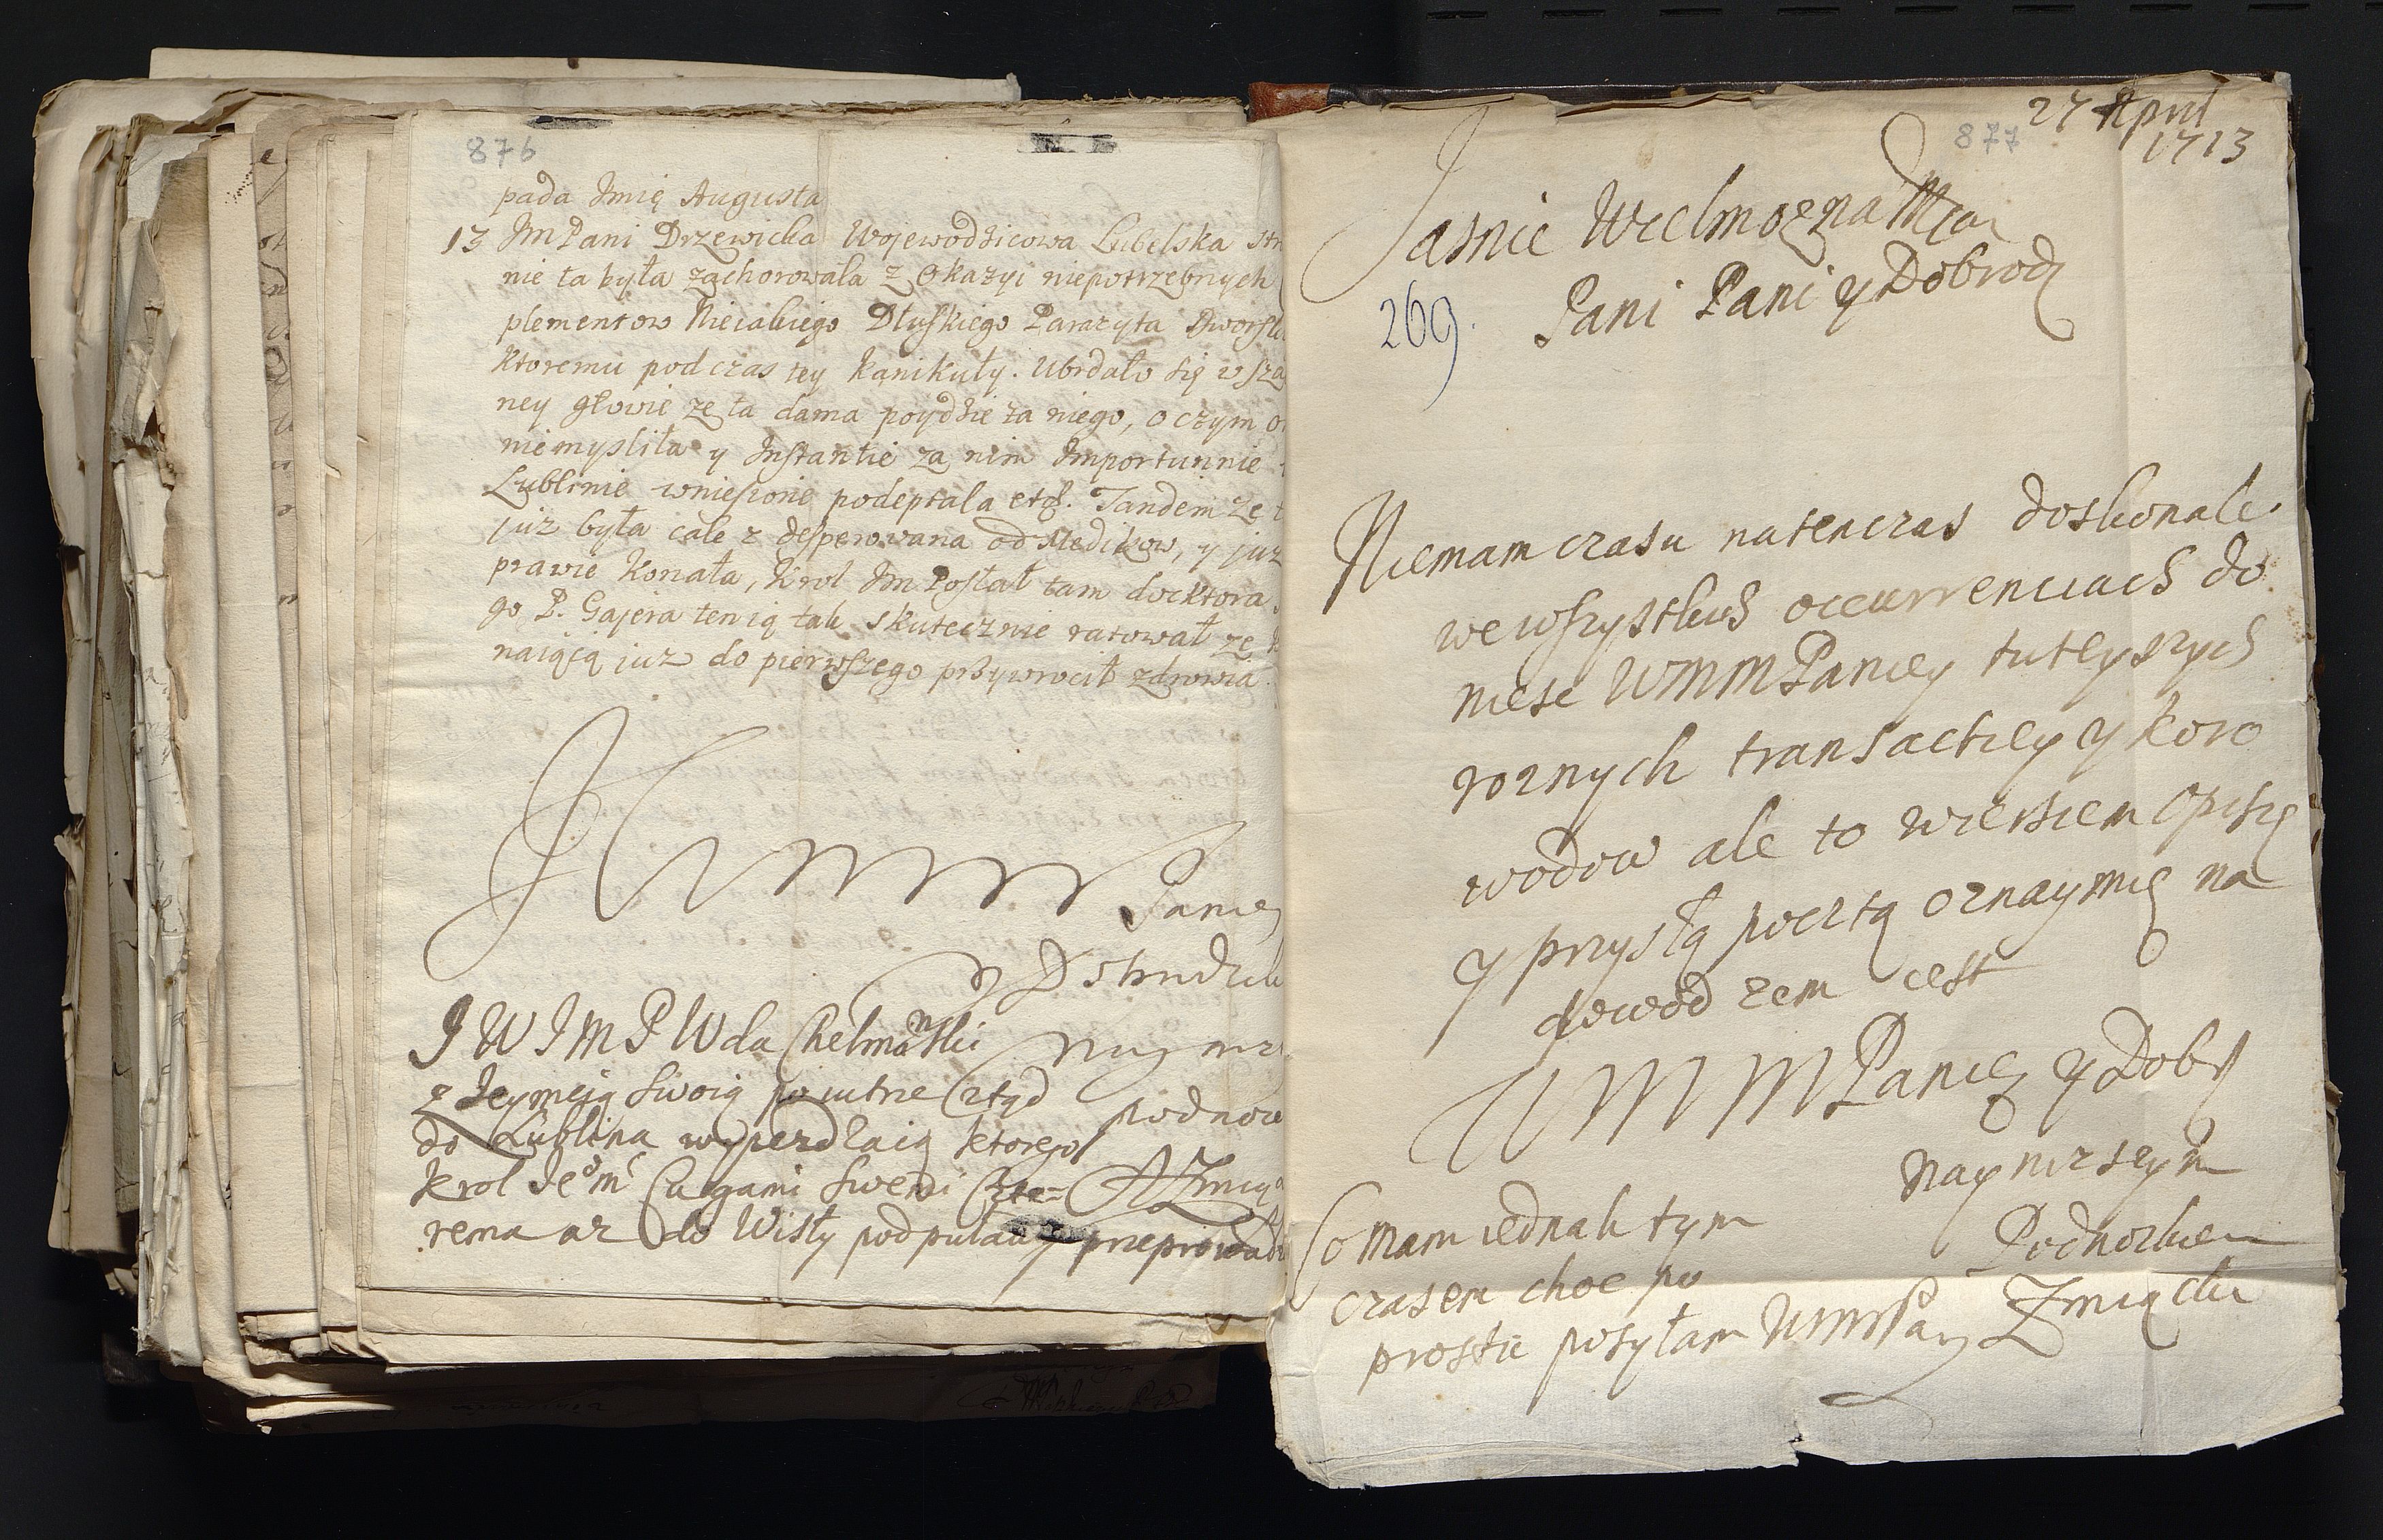 876
pada Imię Augusta
13 Jm Pani Drzewicka Wojewodzicowa Lubelska
nie ta była zachorowała z Okazyi niepotrzebnych
plementow Nieiakiego Dłuskiego Parazyta
ktoremu podczas tey kanikuły. Ubrdało się w
ney głowie ze ta dama poydzie za niego, o czym
nie mysliła y Instantie za nim Importunnie
Lublinie wniesione podeptala etc. Tandem ze
juz była cale z desperowana od Medikow, y juz
prawie Konała, Krol Jm Posłał tam docktora
go P. Gajera ten ią tak skutecznie ratował ze
naiąią juz do pierwszego przywrocił zdrowia
Paniey
JWJMPWda Chelmanski
z Jeymcią swoią po iutrze ztąd
podnow
do Lublina wyiezdzaią ktorego
Krol Jeo mć Cugami swemi Czte=
rema az do Wisły pod puławy przeprowadz
877
27 April
1713
Jasnie Wielmozna Mcia
Pani Pani y Dobrodz
269.
Niemam czasu natenczas doskonale
we wszystkich occurrenciach do
niesc WMMPaniey tuteyszych
roznych transactiey y koro
wodow ale to wierszem opiszę
y przysłą pocztą oznaymię na
dowod zem iest
WMMPaniey y Dob
Nayniszym
Podnozkiem
Co mam iednak tym
czasem choc po
proscie posyłam WMMPani